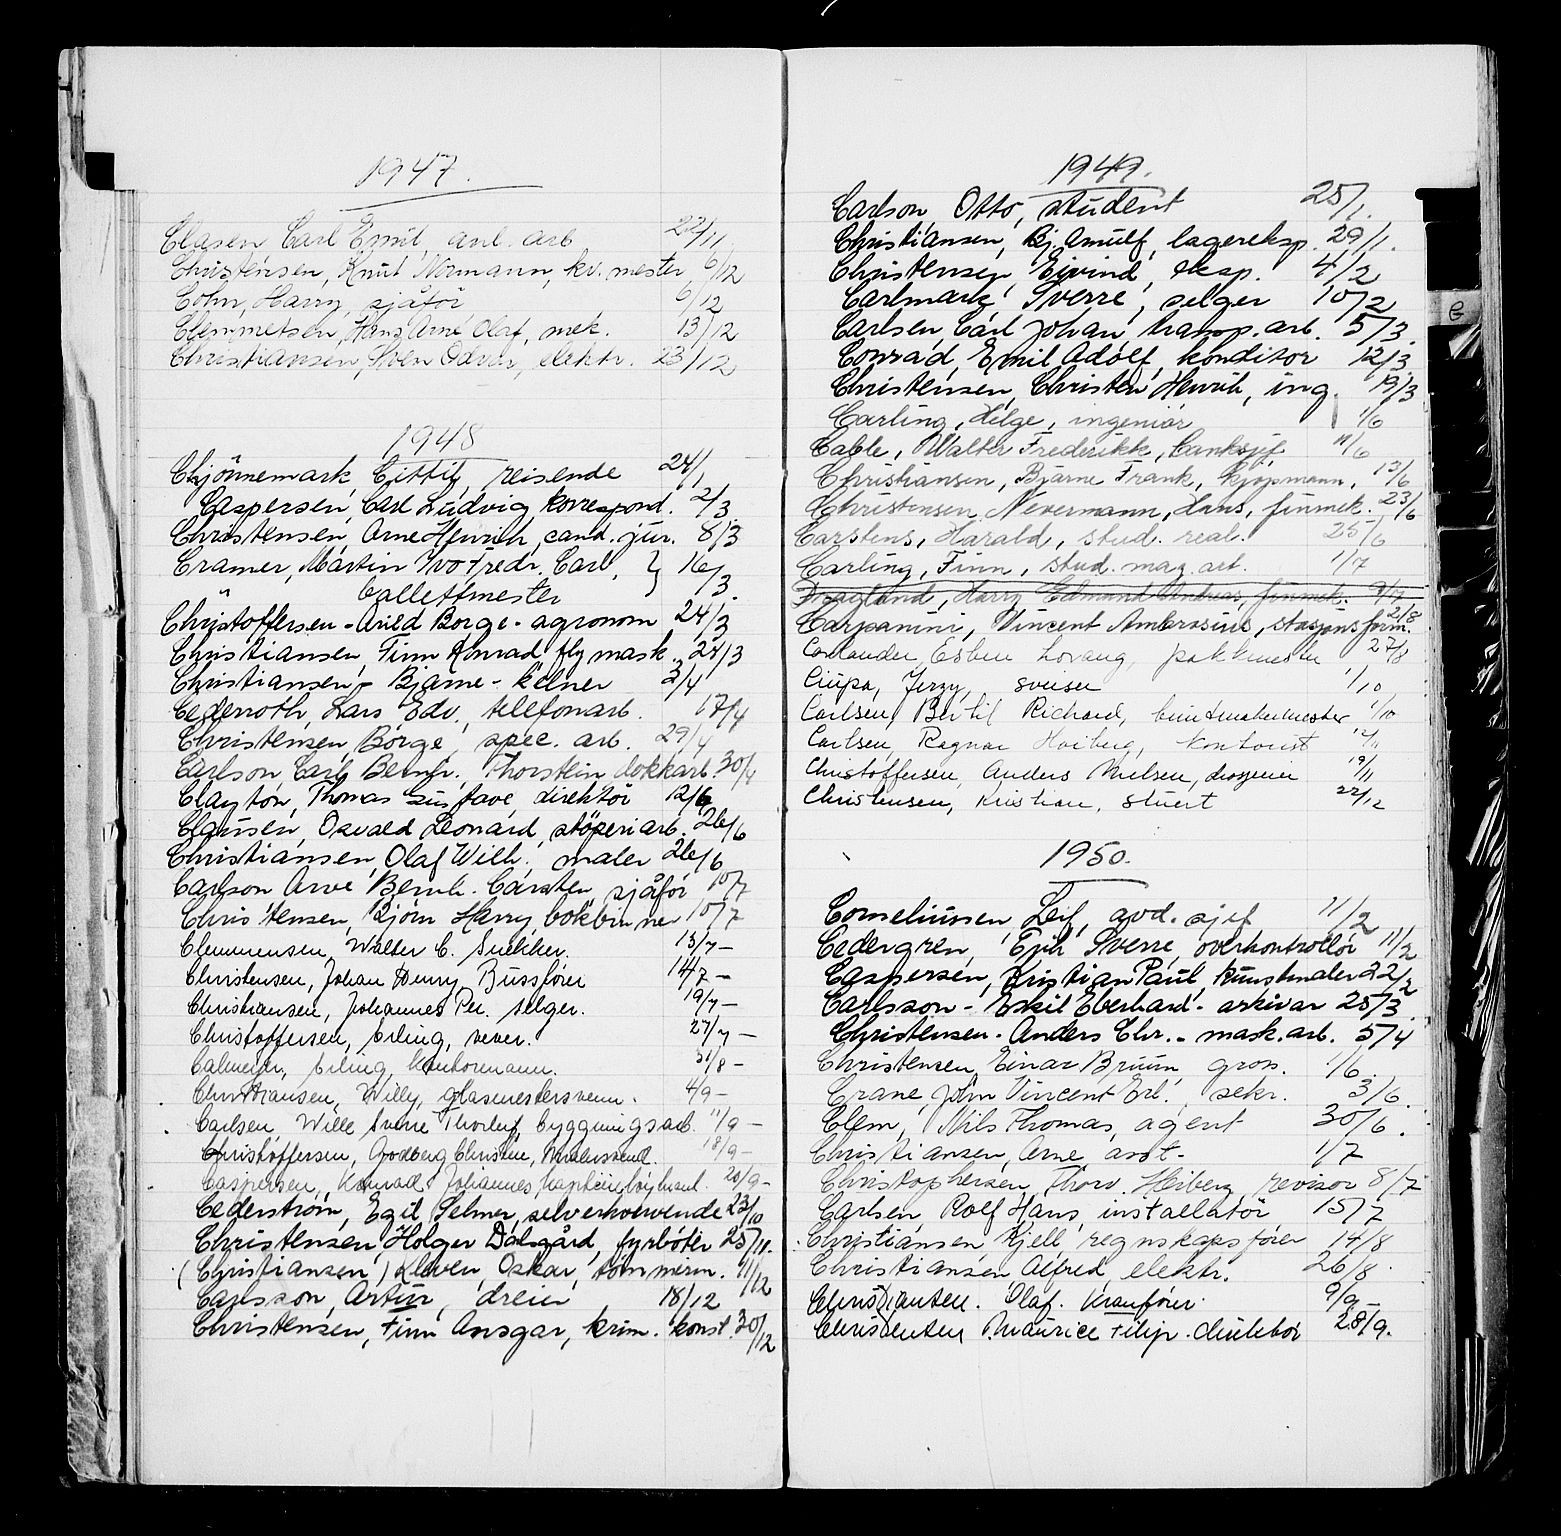 1947.
Clasen Carl Emil, anl. arb 22/11.
Christensen, Knut Normann, kv. mester 6/12
Cohn, Harry, sjåför 6/12
Clemmetsen, Hans Arne Olaf, mek. 13/12
Christiansen, Sven Odvar, elektr. 23/12
1948
Chjönnemark, reisende 24/1
Caspersen, Carl Ludvig, korrespond. 2/3
Christensen, Arne Henrich, cand. jur. 8/3
Cramer, Martin Ivo Fredr. Carl, } 16/3.
" Ballettmester
Christoffersen - Arild Borge - agronom 24/3
Christiansen, Finn Konrad, flymask. 24/3
Christiansen - Bjarne - kelner 3/4
Cederroth, Lars Edv. telefonarb. 17/4
Christensen, Börge, spec. arb. 29/4
Carlson Carl Bernh. Thorstein dokkarb. 30/4
Clayton, Thomas Gustave direktör 12/6
Clausen, Osvald Leonard, stöperiarb. 26/6
Christiansen, Olaf Wilh. maler 26/6
Carlson Arve Bernh. Carsten, sjåför 10/7
Christensen, Bjørn Harry, bokbinner 10/7
Clemmensen, Walter C. Snekker. 13/7 -
Christensen, Johan Henry Bussfører 14/7 -
Christiansen, Johannes Per. selger. 19/7 -
Christoffersen, Erling, rever. 27/7 -
Calmeyer, Erling, Kontormann. 31/8 -
Christiansen, Willy, glasmestersvenn. 4/9 -
Carlsen, Wille Sverre Thorleif byggningsarb. 11/9 -
Christoffersen, Godberg Christen, Malersvend. 18/9 -
Caspersen, Konrad Johannes, 20/9 -
Cederström, Egil Selmer, selverhvervende 23/10
Christensen Holger Dalsgård, fyrböter 25/11.
(Christiansen) Kleven, Oskar, tömmerm. 11/12
Carlsson, Artur, dreier 18/12
Christensen, Finn Ansgar, krim. konst. 30/12
1949.
Carlson, Otto, student 25/1.
Christiansen, Bj. Arnulf, lagereksp. 29/1.
Christensen, Eivind, eksp. 4/2
Carlmark, Sverre, selger 10/2
Carlsen, Carl Johan transp. arb. 5/3.
Conrad, Emil Adolf, konditor 12/3.
Christensen, Christen Henrik, ing. 19/3
Carling, Helge, ingeniör 1/6
Cable, Walter Frederikk, banksjef 11/6
Christiansen, Bjarne Frank, kjøpmann, 13/6
Christensen Nevermann, Hans, finmek. 23/6
Carstens, Harald, stud. real. 25/6
Carling, Finn, stud. mag. art. 1/7
Dragland, Harry Edmund Andreas, finmek. 9/7
Carpanini, Vincent Ambrosius, stasjonsform. 2/8
Calander Esben Lovang, pakkmester 27/8
Ciupa, Jerzy, sveiser 1/10
Carlsen, Bertil Richard, buntmakermester 1/10
Carlsen, Ragnar Hoiberg, Kontorist 12/11
Christoffersen, Anders Nielsen, drogerier 19/11
Christensen, Kristian, stuert 22/12
1950.
Corneliussen Leif, avd. sjef 11/2
Cedergren, Erik Sverre, overkontrollör 11/2
Caspersen, Kristian Paul, Kunstmaler 22/2
Carlsson - Eskil Eberhard - arkivar 25/3.
Christensen - Anders Chr. - mask. arb. 5/4
Christensen, Einar Bruun gros. 1/6.
Crane, John Vincent Erl. sekr. 3/6.
Clem, Nils Thomas, agent 30/6.
Christiansen, Arne asst. 1/7
Christophersen, Thorv. Heiberg revisor 8/7
Carlsen, Rolf Hans, installatör 15/7
Christiansen, Kjell, regnskapsfører 14/8
Christiansen Alfred, elektr. 26/8
Christiansen. Olaf. Kranfører. 9/9
Christensen Maurice Filip. direktör 28/9.
C